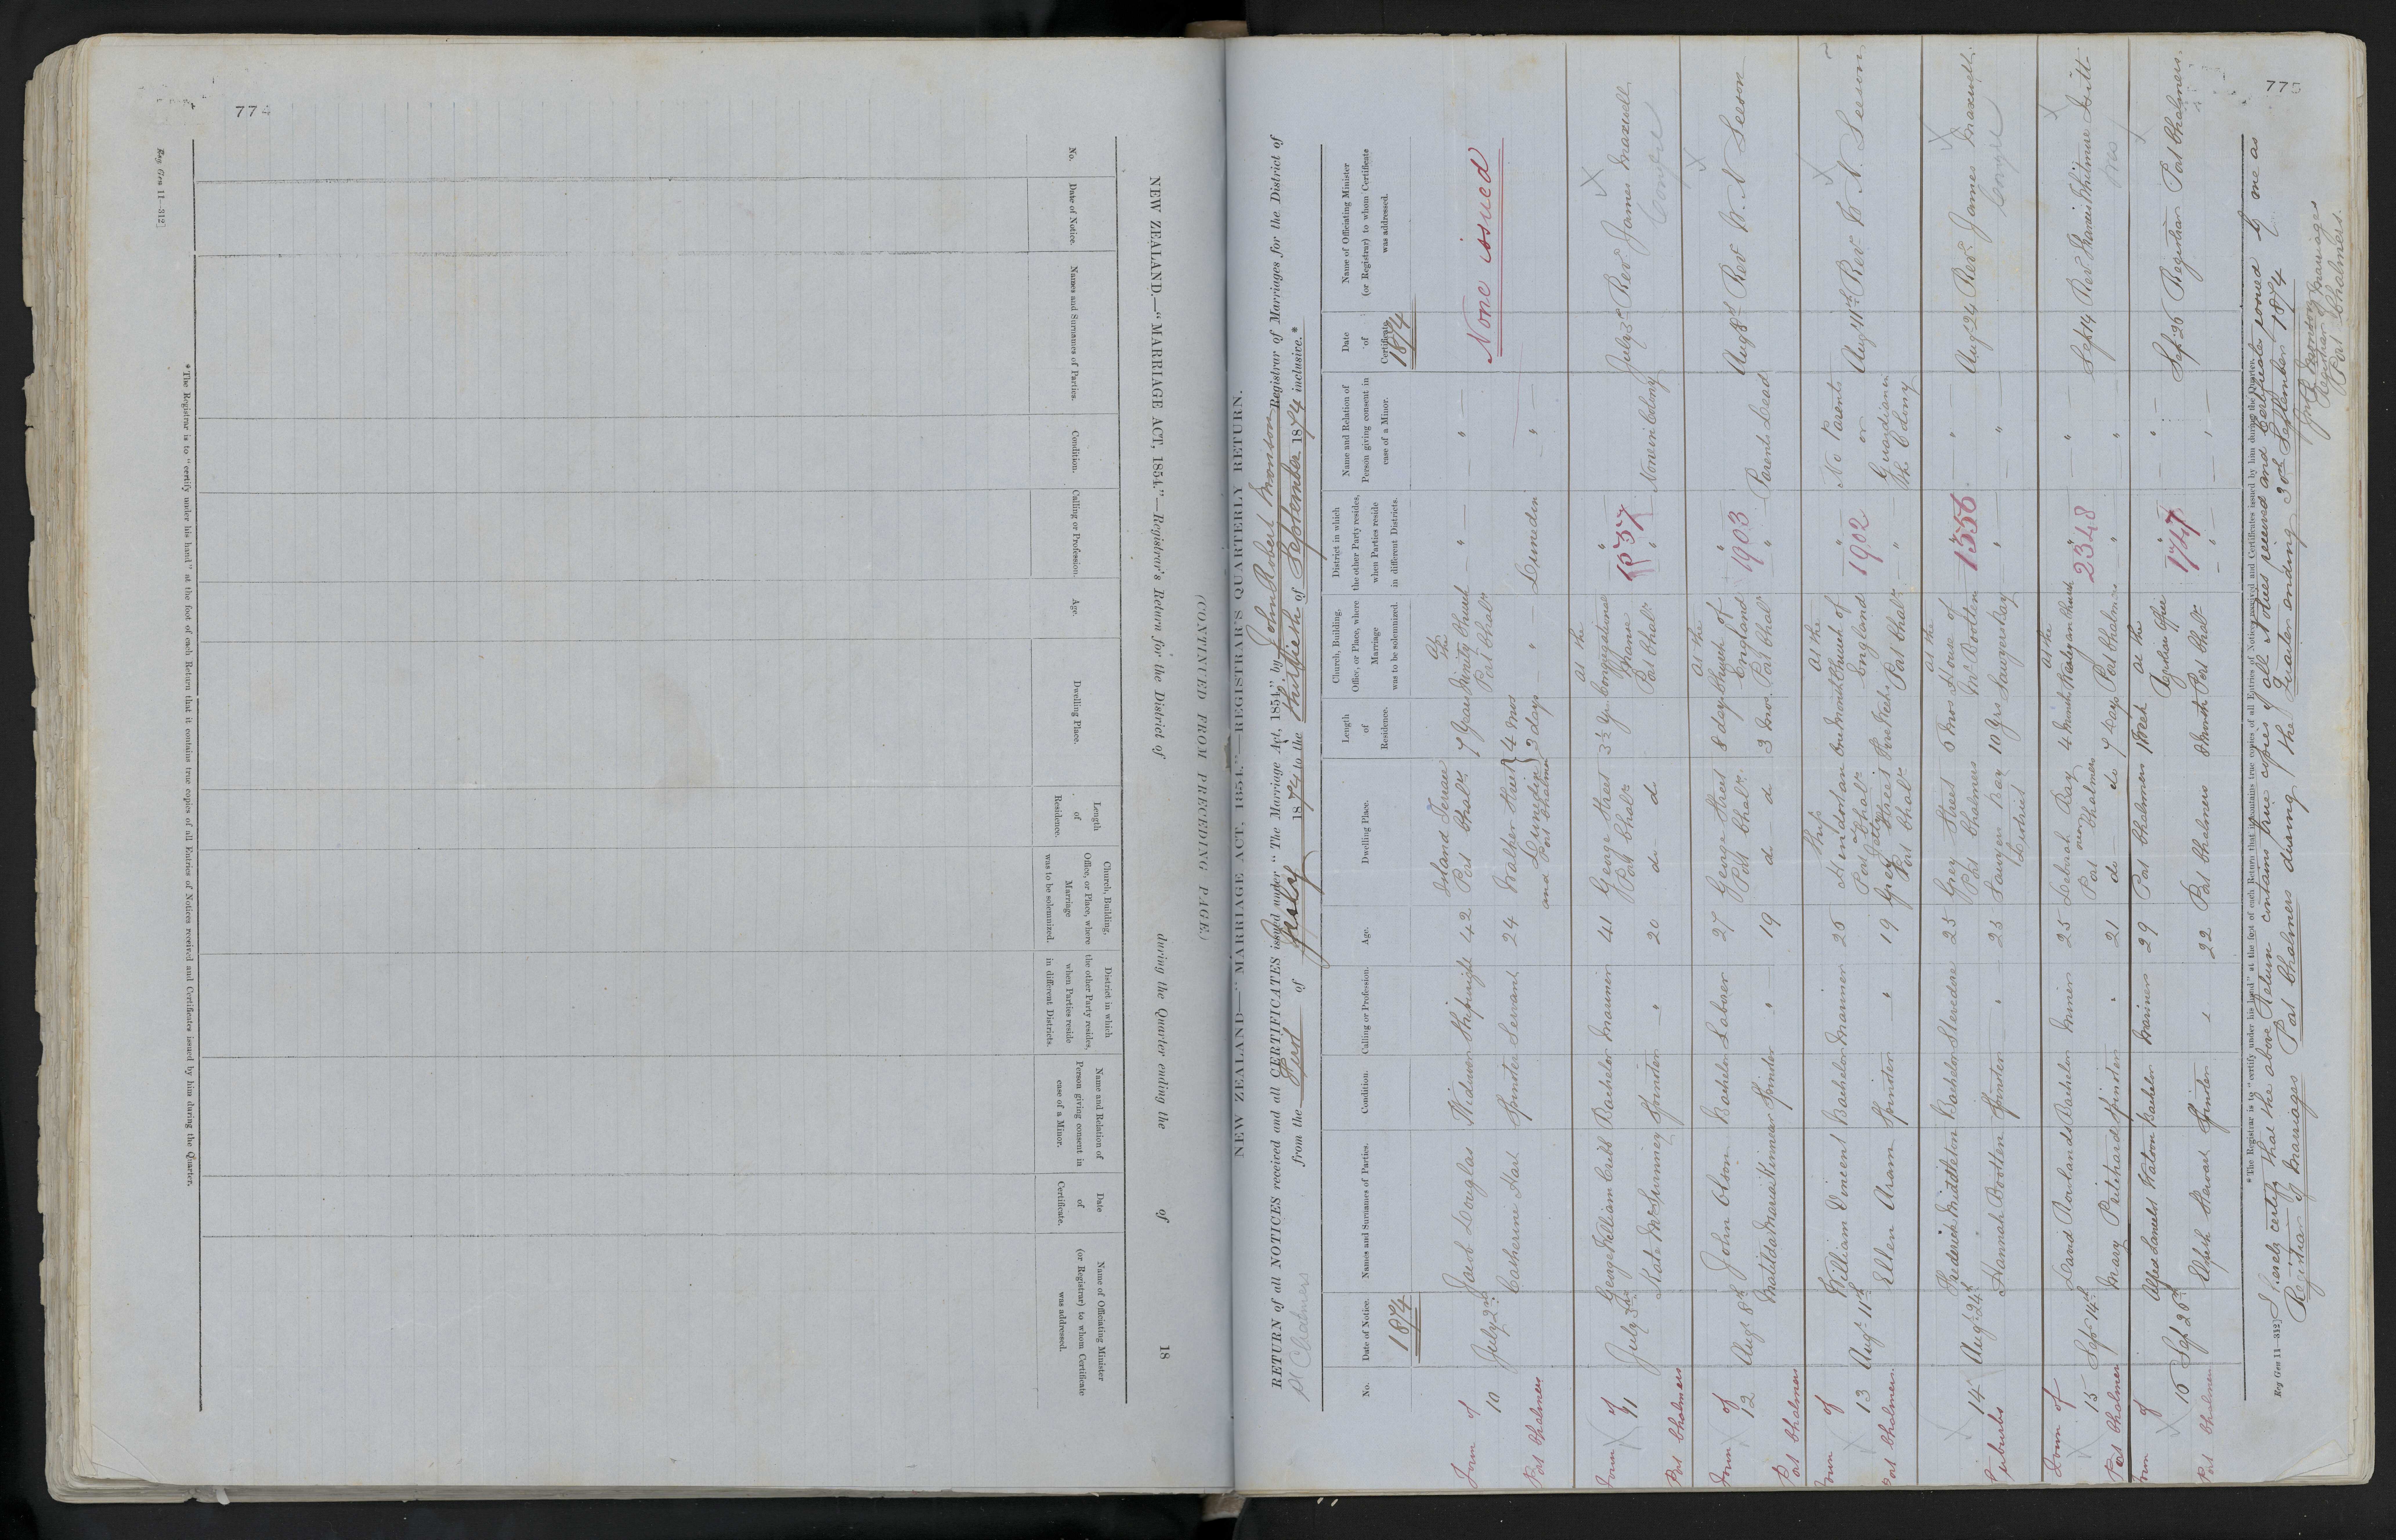 774
Reg Gen 11—312]
NEW ZEALAND.—"MARRIAGE ACT, 1854."—Registrar's Return for the District of during the Quarter ending the of 18
(CONTINUED FROM PRECEDING PAGE.)
No.
Date of Notice.
Names and Surnames of Parties.
Condition.
Calling or Profession.
Age.
Dwelling Place.
Length of Residence.
Church, Building, Office, or Place, where Marriage was to be solemnized.
District in which the other Party resides, when Parties reside in different Districts.
Name and Relation of Person giving consent in case of a Minor.
Date of Certificate.
Name of Officiating Minister (or Registrar) to whom Certificate was addressed.
*The Registrar is to "certify under his hand" at the foot of each Return that it contains true copies of all Entries of Notices received and Certificates issued by him during the Quarter.
775
NEW ZEALAND—"MARRIAGE ACT, 1854."—REGISTRAR'S QUARTERLY RETURN.
RETURN of all NOTICES received and all CERTIFICATES issued under "The Marriage Act, 1854," by John Robert Monson Registrar of Marriages for the District of
Pt Chalmers from the First of July 1874 to the thirtieth of September 1874 inclusive.*
No.
Date of Notice.
Names and Surnames of Parties.
Condition.
Calling or Profession.
Age.
Dwelling Place.
Length of Residence.
Church, Building, Office, or Place, where Marriage was to be solemnized.
District in which the other Party resides, when Parties reside in different Districts.
Name and Relation of Person giving consent in case of a Minor.
Date of Certificate.
Name of Officiating Minister (or Registrar) to whom Certificate was addressed.
1874 1874
Town of Port Chalmers
10 July 2nd Jacob Douglas Widower Shipwright 42 Island Terrace Port Chalrs 7 Years At the Trinity Church Port Chalrs — " — — " — None issued
Catherine Hart Spinster Servant 24 Walker Street Dunedin and Port Chalmers 4 mos 3 days — " — Dunedin — " —
Town of Port Chalmers
11 July 3rd George William Cribb Bachelor Mariner 41 George Street Port Chalrs 3½ Yrs At the Congregational Manse Port Chalrs " 1537 July 3rd Revd James Maxwell Congre
Kate McSweeney Spinster — " 20 do do " None in Colony
Town of Port Chalmers
12 Augt 8th John Olson Bachelor Labourer 27 George Street Port Chalrs 8 days At the Church of England Port Chalr " 1903 Augt 8th Revd W. N. Leeson
Matilda Maria Spinster " 19 do do 3 mos " Parents Dead
Town of Port Chalmers
13 Augt 11th William Vincent Bachelor Mariner 26 Ship Port Chalrs One Month At the Church of England Port Chalrs " 1902 No Parents or Guardian in the Colony Augt 11th Revd W. N. Leeson
Ellen Aram Spinster " 19 Grey Street Port Chalrs "
Suburbs
14 Augt 24th Frederick Middleton Bachelor Stevedore 25 Grey Street Port Chalmers 6 mos At the House of Mr Bootten Sawyers Bay 1556 — " — Augt 24 Revd James Maxwell Congre
Hannah Bootten Spinster — " 23 Sawyers Bay District 10 Yrs " — "
Town of Port Chalmers
15 Sept 14th David Rowlands Bachelor Miner 25 Deborah Bay near Port Chalmers 4 months At the Wesleyan Church Port Chalmers " 2348 — " Sept 14 Revd Francis Whitmore Isitt Wes
Mary Pritchard Spinster " 21 do — do 7 days — " — "
Town of Port Chalmers
16 Sept 26th Alfred Watson Bachelor Mariner 29 Port Chalmers 1 Week At the Registrars Office Port Chalrs 1747 — " — Sept 26 Registrar Port Chalmers.
Elspeth Stewart Spinster " 22 Port Chalmers 8 month — " — — " —
*The Registrar is to "certify under his hand" at the foot of each Return that it contains true copies of all Entries of Notices received and Certificates issued by him during the Quarter.
Reg Gen 11—312]
I hereby certify that the above Return contains true copies of all Notices received and Certificates issued by me as
Registrar of Marriages Port Chalmers during the Quarter ending 30th September 1874
Monson
Registrar of Marriages
Port Chalmers.